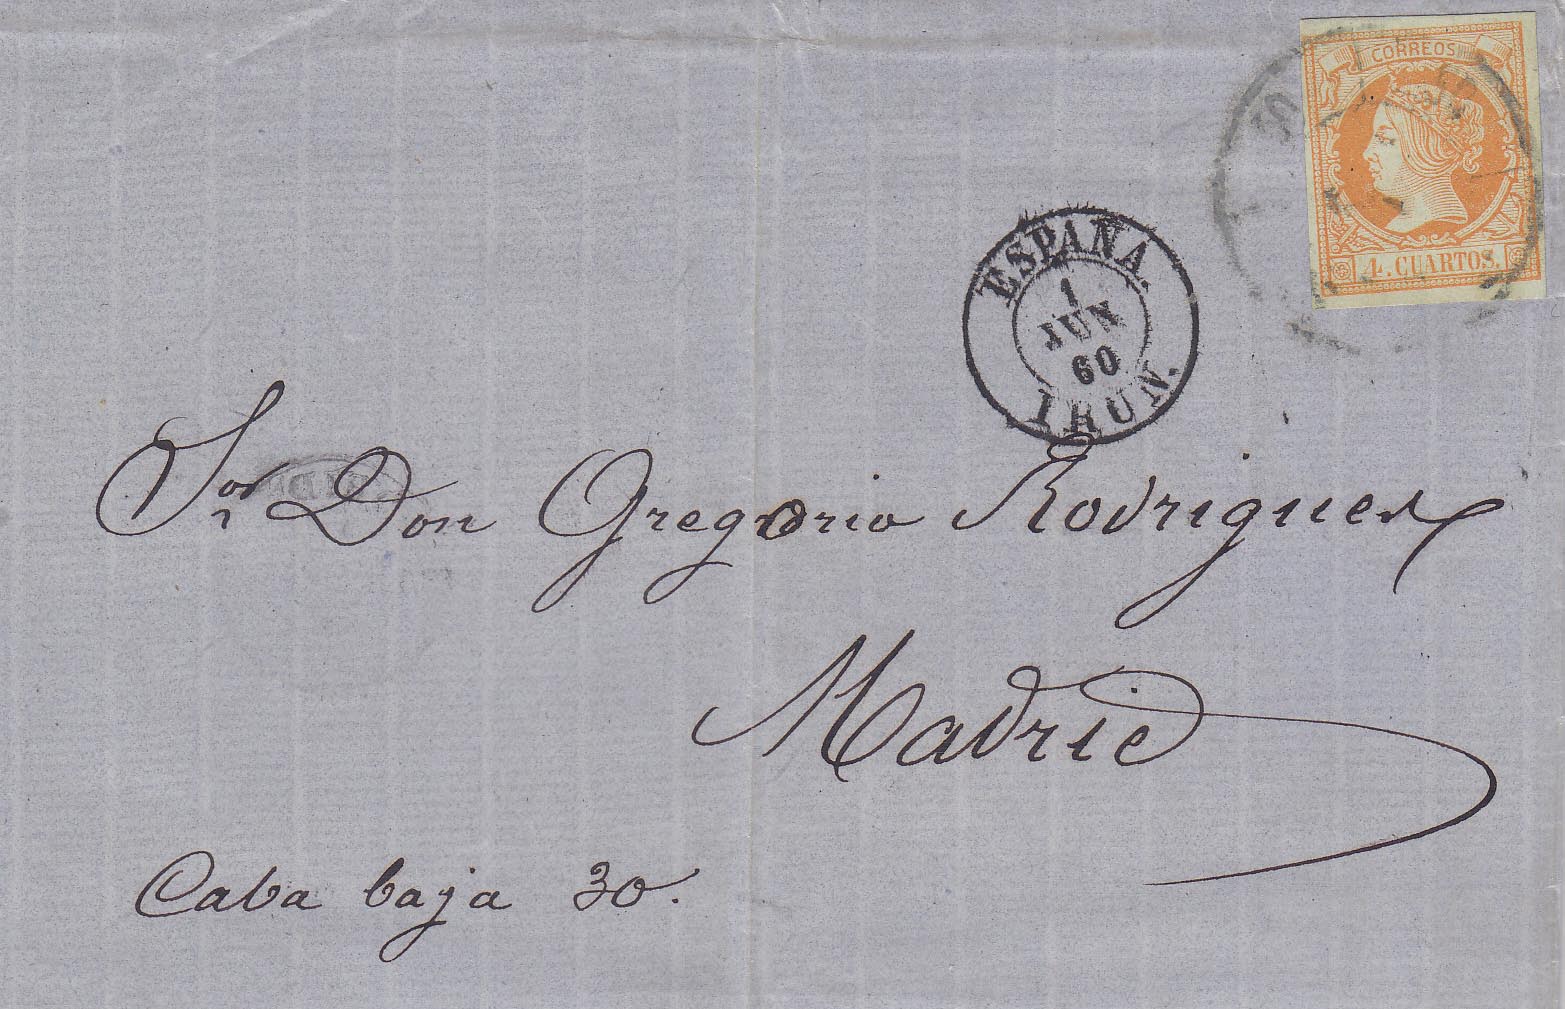 CORREOS
4. CUARTOS.
ESPAÑA.
1
JUN
60
IRUN.
Sor Dn Don Gregorio Rodriguez
Madrid
Caba baja 30.